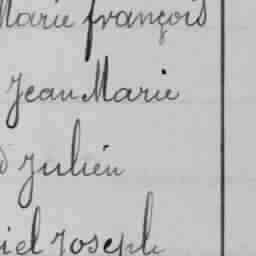 Marie françois
Jean Marie
Julien
iel Joseph